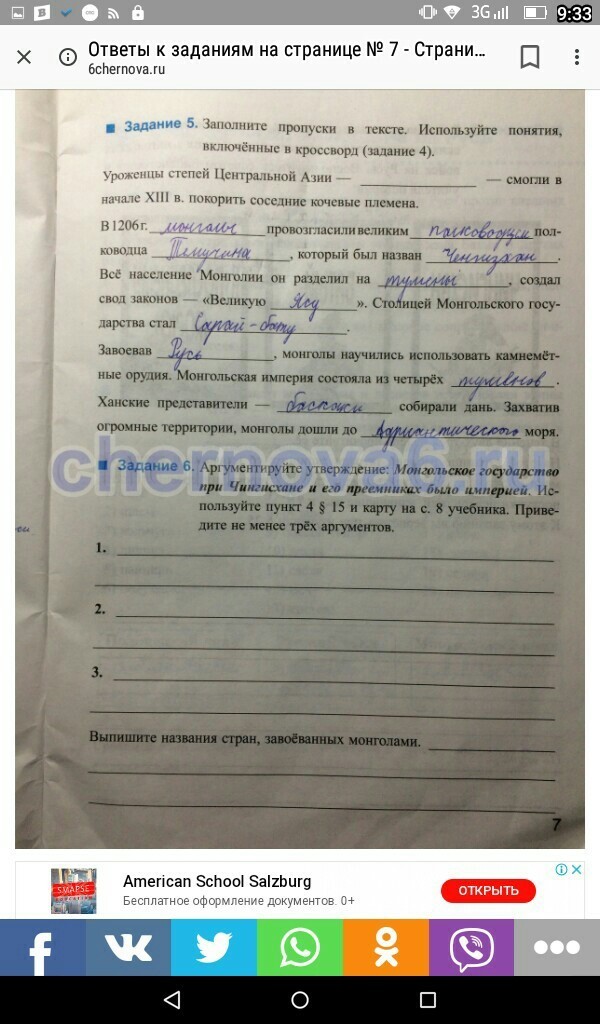 3G
9:33
Ответы к заданиям на странице № 7 - Страни...
6chernova.ru
Задание 5. Заполните пропуски в тексте. Используйте понятия,
включённые в кроссворд (задание 4).
Уроженцы степей Центральной Азии — ____________ — смогли в
начале XIII в. покорить соседние кочевые племена.
В 1206 г. монголы провозгласили великим полководцем пол-
ководца Темучина, который был назван Чингизхан.
Всё население Монголии он разделил на тумены, создал
свод законов — «Великую Ясу». Столицей Монгольского госу-
дарства стал Сарай-бату.
Завоевав Русь, монголы научились использовать камнемёт-
ные орудия. Монгольская империя состояла из четырёх туменов.
Ханские представители — баскаки собирали дань. Захватив
огромные территории, монголы дошли до Адриантического моря.
chernova6.ru
Задание 6. Аргументируйте утверждение: Монгольское государство
при Чингисхане и его преемниках было империей. Ис-
пользуйте пункт 4 § 15 и карту на с. 8 учебника. Приве-
дите не менее трёх аргументов.
1.
2.
3.
Выпишите названия стран, завоёванных монголами.
7
SMAPSE
American School Salzburg
Бесплатное оформление документов. 0+
ОТКРЫТЬ